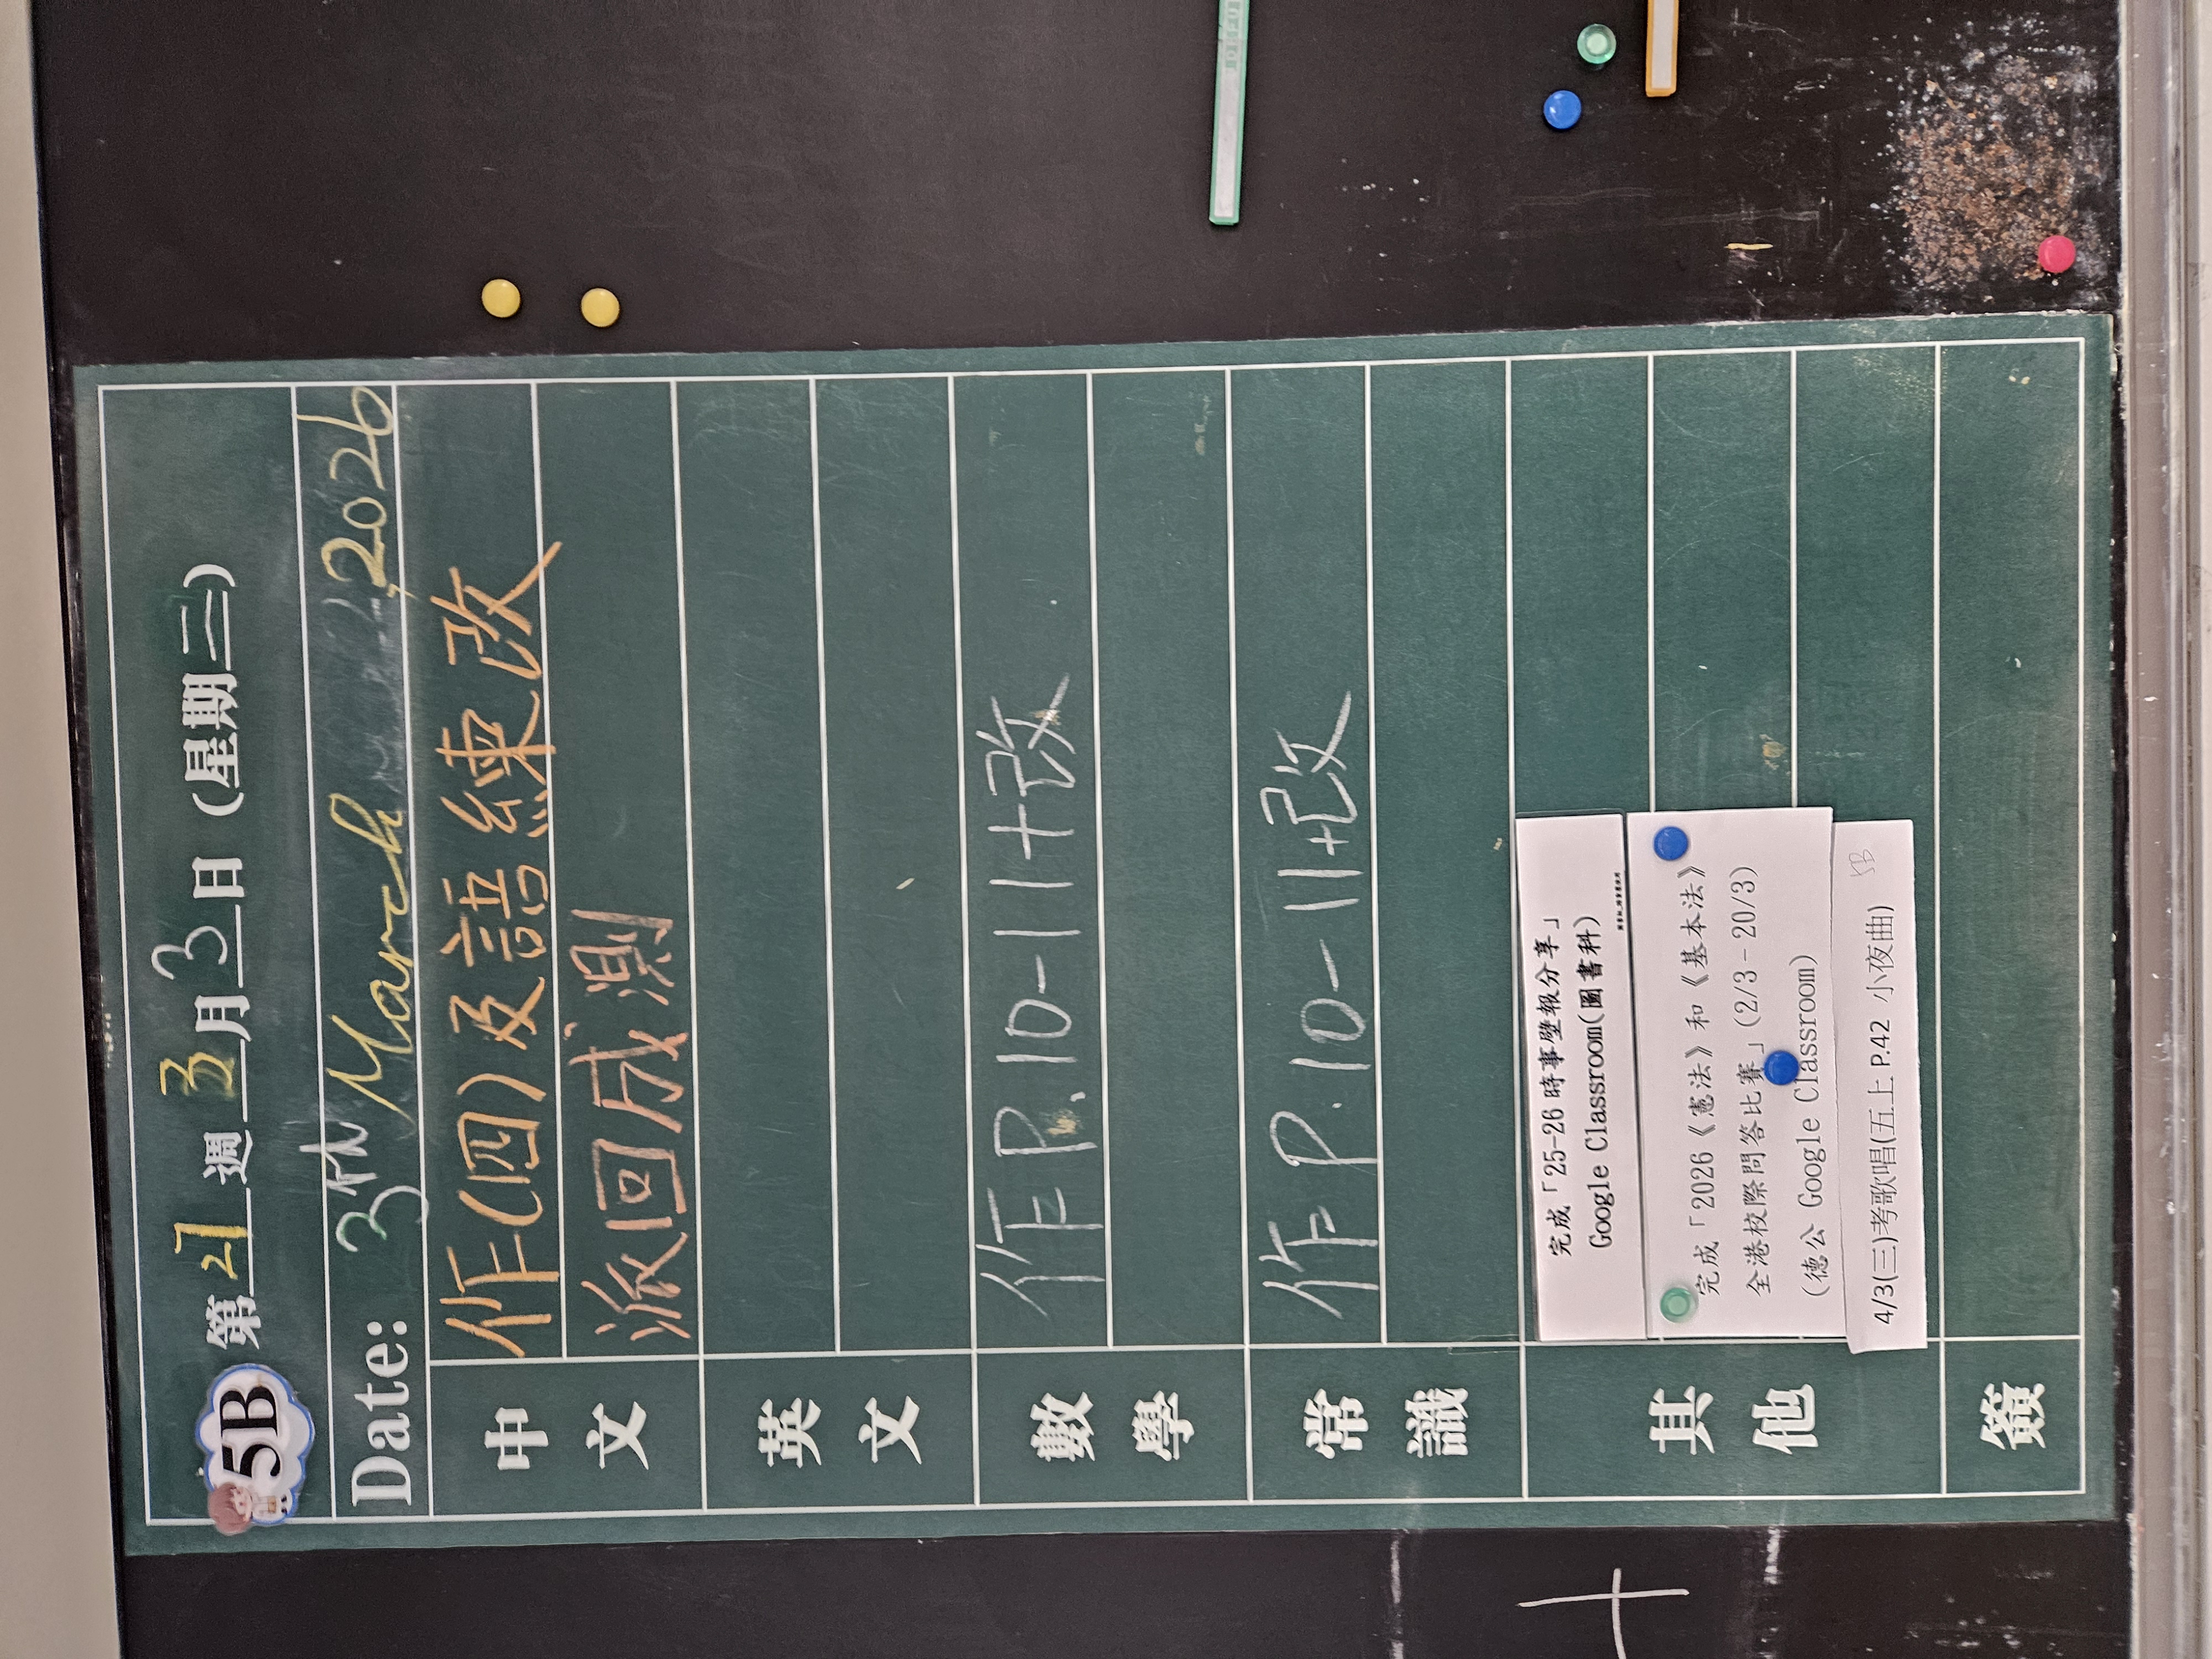 5B 第 21 週 3 月 3 日 (星期二)
Date: 3th March, 2026
中文 作(四)及語練改
派回成測
英文
數學 作 P.10-11+改
常識 作 P.10-11+改
其他 完成「25-26 時事壁報分享」
Google Classroom(圖書科)
完成「2026《憲法》和《基本法》
全港校際問答比賽」(2/3-20/3)
(德公 Google Classroom)
4/3(三)考歌唱(五上 P.42 小夜曲) 5B
簽